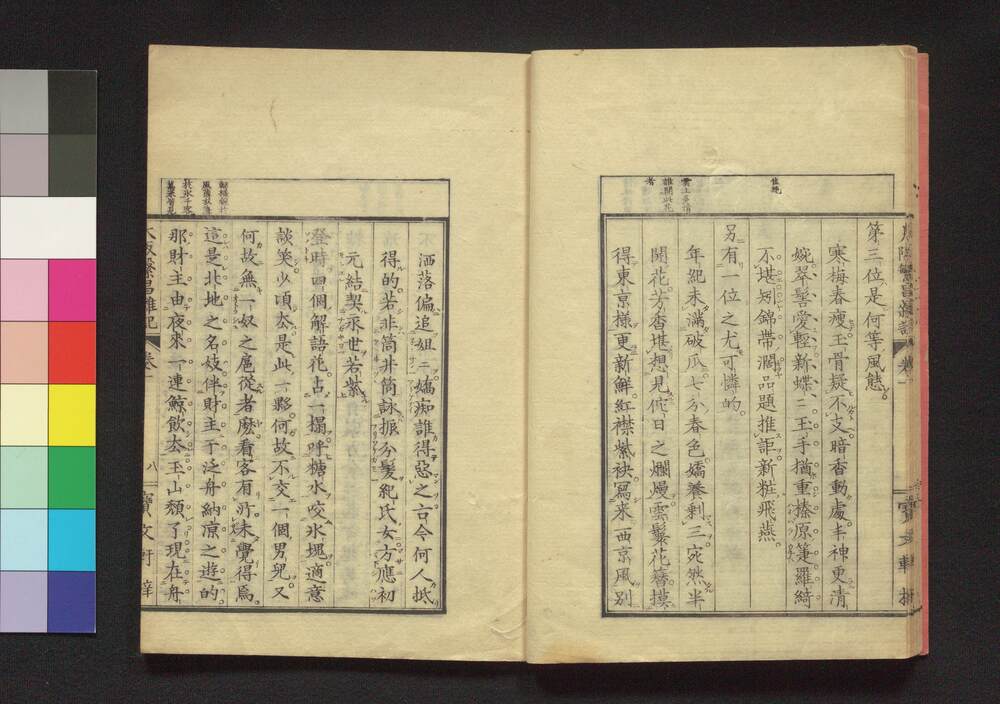 第三位是何等風態
寒梅春瘦玉骨疑不支暗香動處丰神更清
婉翠髻愛輕新蝶二玉手猶重搸原箑羅綺
不堪矧錦帶濶品題推詎新粧飛燕
另有一位之尤可憐的
年紀未滿破瓜七分春色嬌養剩三宛然半
開花芳香堪想見佗日之爛熳雲鬟花簪摸
得東京樣更新鮮紅襟紫袂寫来西京風別
洒落偏追組二嬌痴誰得惡之古今何人抵
得的若非筒井筒詠振分髮紀氏女方應初
元結契永世若紫
登時四個解語花占一搨呼糖水咬氷塊適意
談笑少頃太是此一夥何故不交一個男兒又
何故無一奴之扈從者麼看客有所未覺得焉
這是北地之名妓伴財主于泛舟納涼之遊的
那財主由夜來一連鯨飲太玉山頹了現在舟
大阪繁昌雜記 卷一 八 寶文軒梓